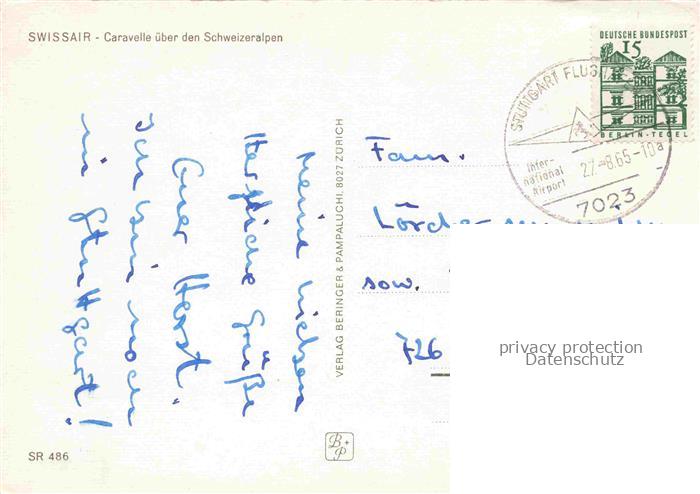 SWISSAIR - Caravelle über den Schweizeralpen
DEUTSCHE BUNDESPOST
15
BERLIN-TEGEL
STUTTGART FLUG
Inter-
national
Airport
27.-8.65-10a
7023
Meine lieben
Herzliche Grüße
Euer Horst.
Ich bin noch
in Stuttgart!
VERLAG BERINGER & PAMPALUCHI, 8027 ZÜRICH
Fam.
sow.
726
privacy protection
Datenschutz
B+P
SR 486